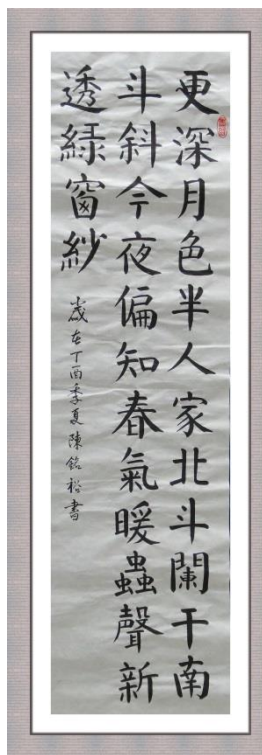 更深月色半人家北斗闌干南
斗斜今夜偏知春氣暖蟲聲新
透綠窗紗
歲在丁酉季夏陳銘裕書